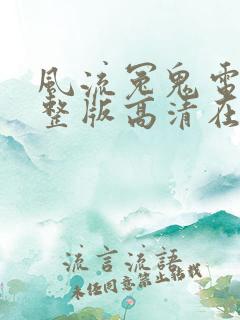 风流冤鬼雷
整版高清在
流言流語
未经同意禁止转载